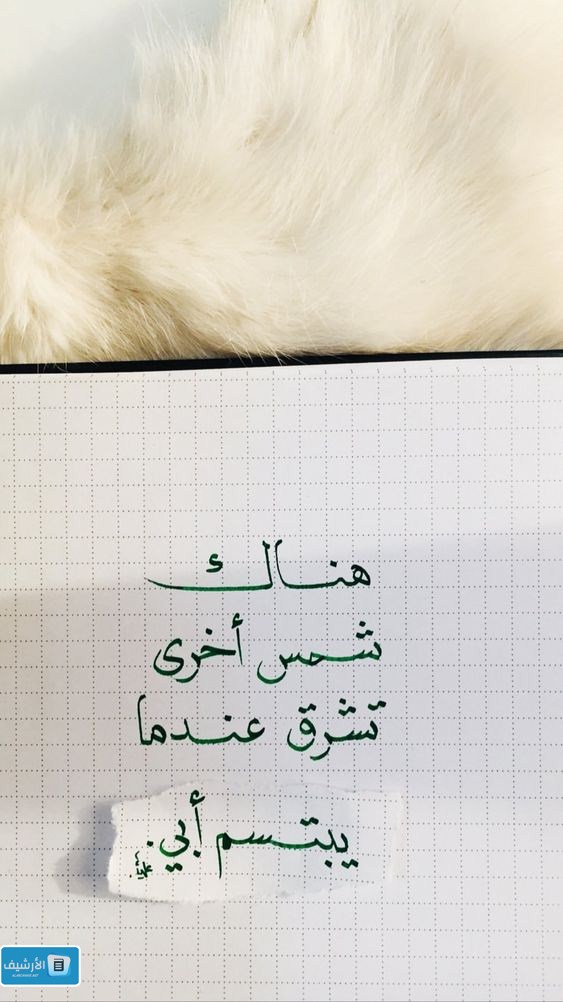 هناك
شمس أخرى
تشرق عندما
يبتسم أبي.
الأرشيف